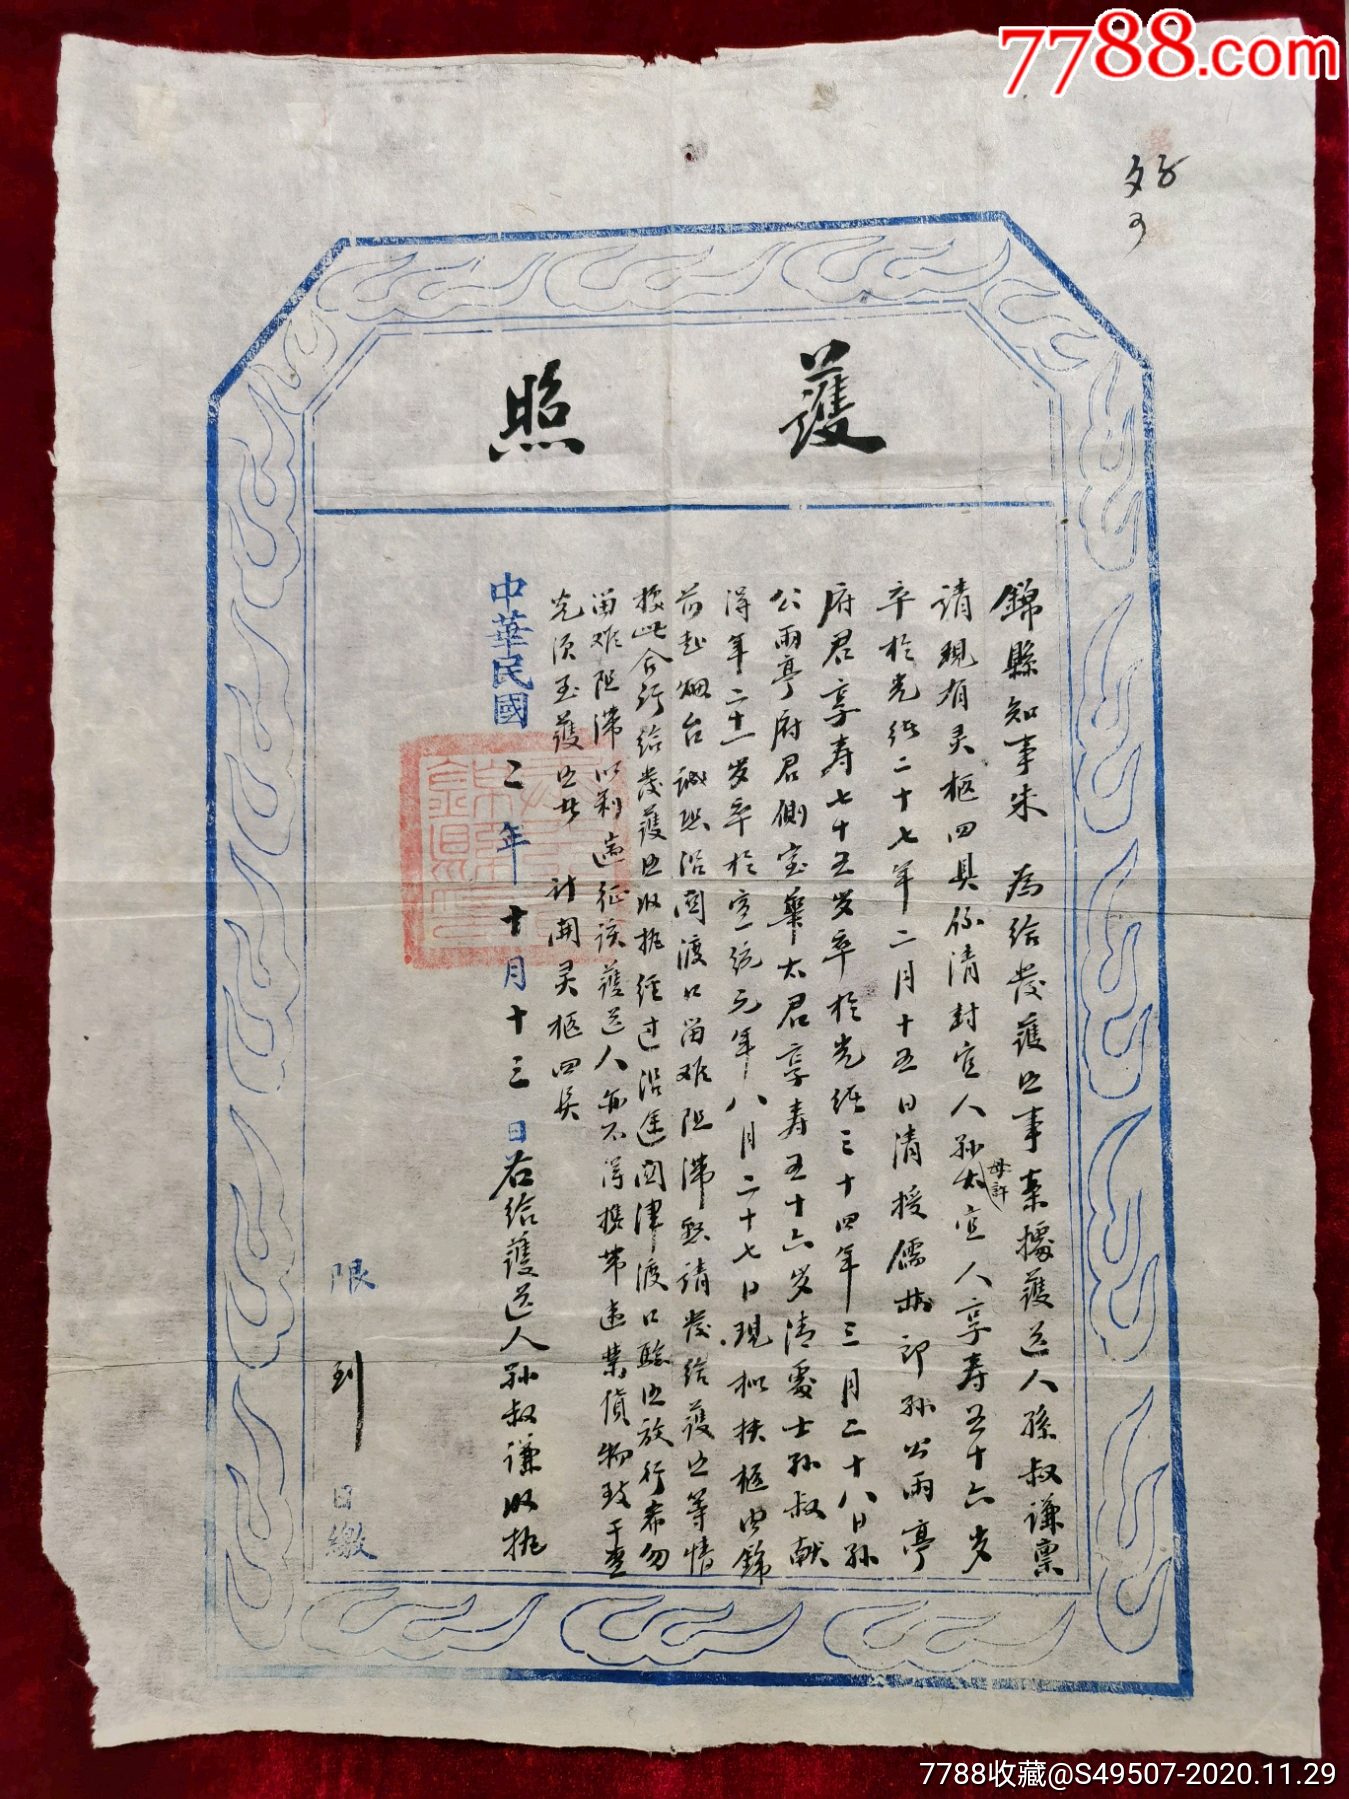 7788.com
護照
錦縣知事朱 為給發護照事案據護送人孫叔謙禀
請現有灵柩四具係清封宜人孙母許太宜人享寿五十六岁
卒於光緒二十七年二月十五日清授儒林郎孙公雨亭
府君享寿七十五岁卒於光緒三十四年三月二十八日孙
公雨亭府君側室畢太君享寿五十六岁清處士孙叔献
得年二十一岁卒於宣統元年八月二十七日現拟扶柩由錦
前赴烟台誠恐沿関渡口留难阻滞懇請發给護照等情
據此合行給發護照收执經过沿途関津渡口驗照放行希勿
留难阻滞以利遄征該護送人亦不得携带违禁貨物致干查
究須至護照者 計開灵柩四具
中華民國二年十月十三日右给護送人孙叔谦收执
限 到 日繳
7788收藏@S49507-2020.11.29